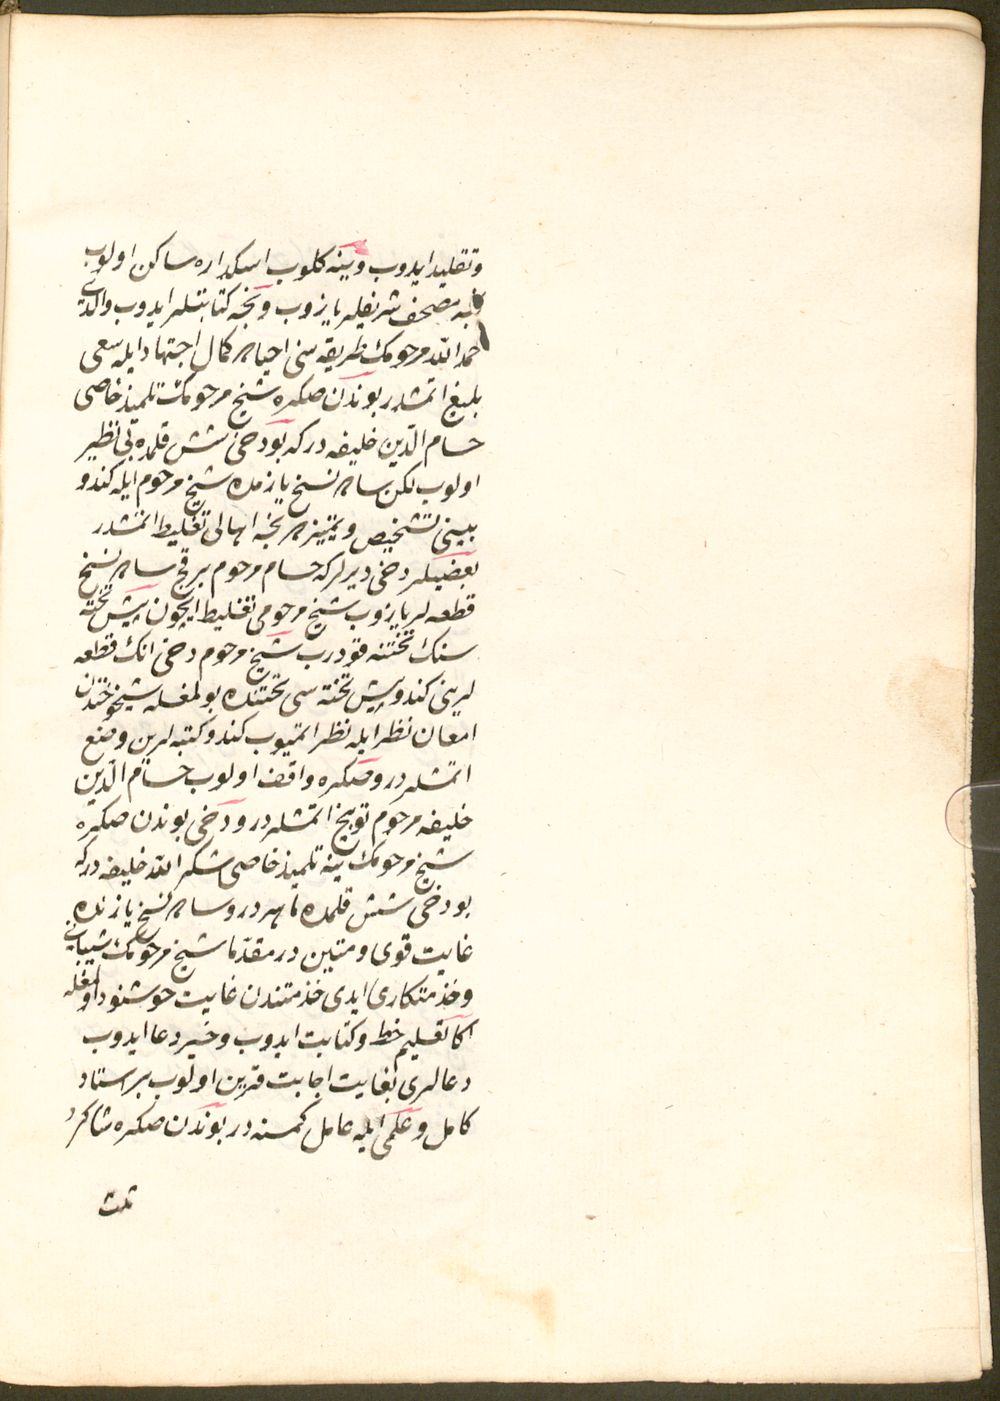 و تقلید ایدوب وینه کلوب اسکداره ساکن اولوب
نیجه مصحف شریفلر یازوب و نیجه کتابتلر ایدوب والدی
حمد الله مرحومک طریقه سنی احیاده کمال اجتهاد ایله سعی
بلیغ اتمشدر بوندن صکره شیخ مرحومک تلمیذ خاصی
حسام الدین خلیفه در که بو دخی شش قلمده بی نظیر
اولوب لکن ساده نسخ یازمده شیخ مرحوم ایله کندو
بینی تشخیص و تمییزده نیجه اهالی تغلیط اتمشدر
بعضیلر دخی دیرلر که حسام مرحوم بر قچ ساده نسخ
قطعه لر یازوب شیخ مرحومی تغلیط ایچون پیش تخته
سنک تختنه قودرب شیخ مرحوم دخی انک قطعه
لرینی کندو پیش تخته سی تحتنده بولمغله شیخوختدن
امعان نظر ایله نظر اتمیوب کندو کتبه لرین وضع
اتمشلردر و صکره واقف اولوب حسام الدین
خلیفه مرحوم توبیخ اتمشلردر و دخی بوندن صکره
شیخ مرحومک ینه تلمیذ خاصی شکر الله خلیفه در که
بو دخی شش قلمده ماهردر و ساده نسخ یازمده
غایت قوی و متین در مقدما شیخ مرحومک شیبانی
و خذمتکاری ایدی خذمتندن غایت خوشنود اولمغله
اکا تعلیم خط و کتابت ایدوب و خیر دعا ایدوب
دعالری بغایت اجابت قرین اولوب بر استاد
کامل و علمی ایله عامل کمسنه در بوندن صکره شاکرد
ثلث